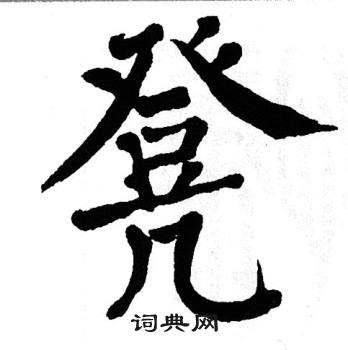 凳
词典网